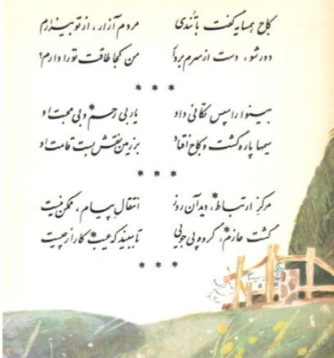 کاج همسایه گفت با تندی
مردم آزار، از تو بیزارم
دور شو، دست از سرم بردار
من کجا طاقت تو را دارم؟
* * *
بینوا را سپس تکانی داد
یار بی رحم و بی محبت او
سیمها پاره گشت و کاج افتاد
بر زمین نقش بست قامت او
* * *
مرکز ارتباط، دید آن روز
انتقال پیام، ممکن نیست
گشت عازم، گروه پی جویی
تا ببیند که عیب کار از چیست
* * *